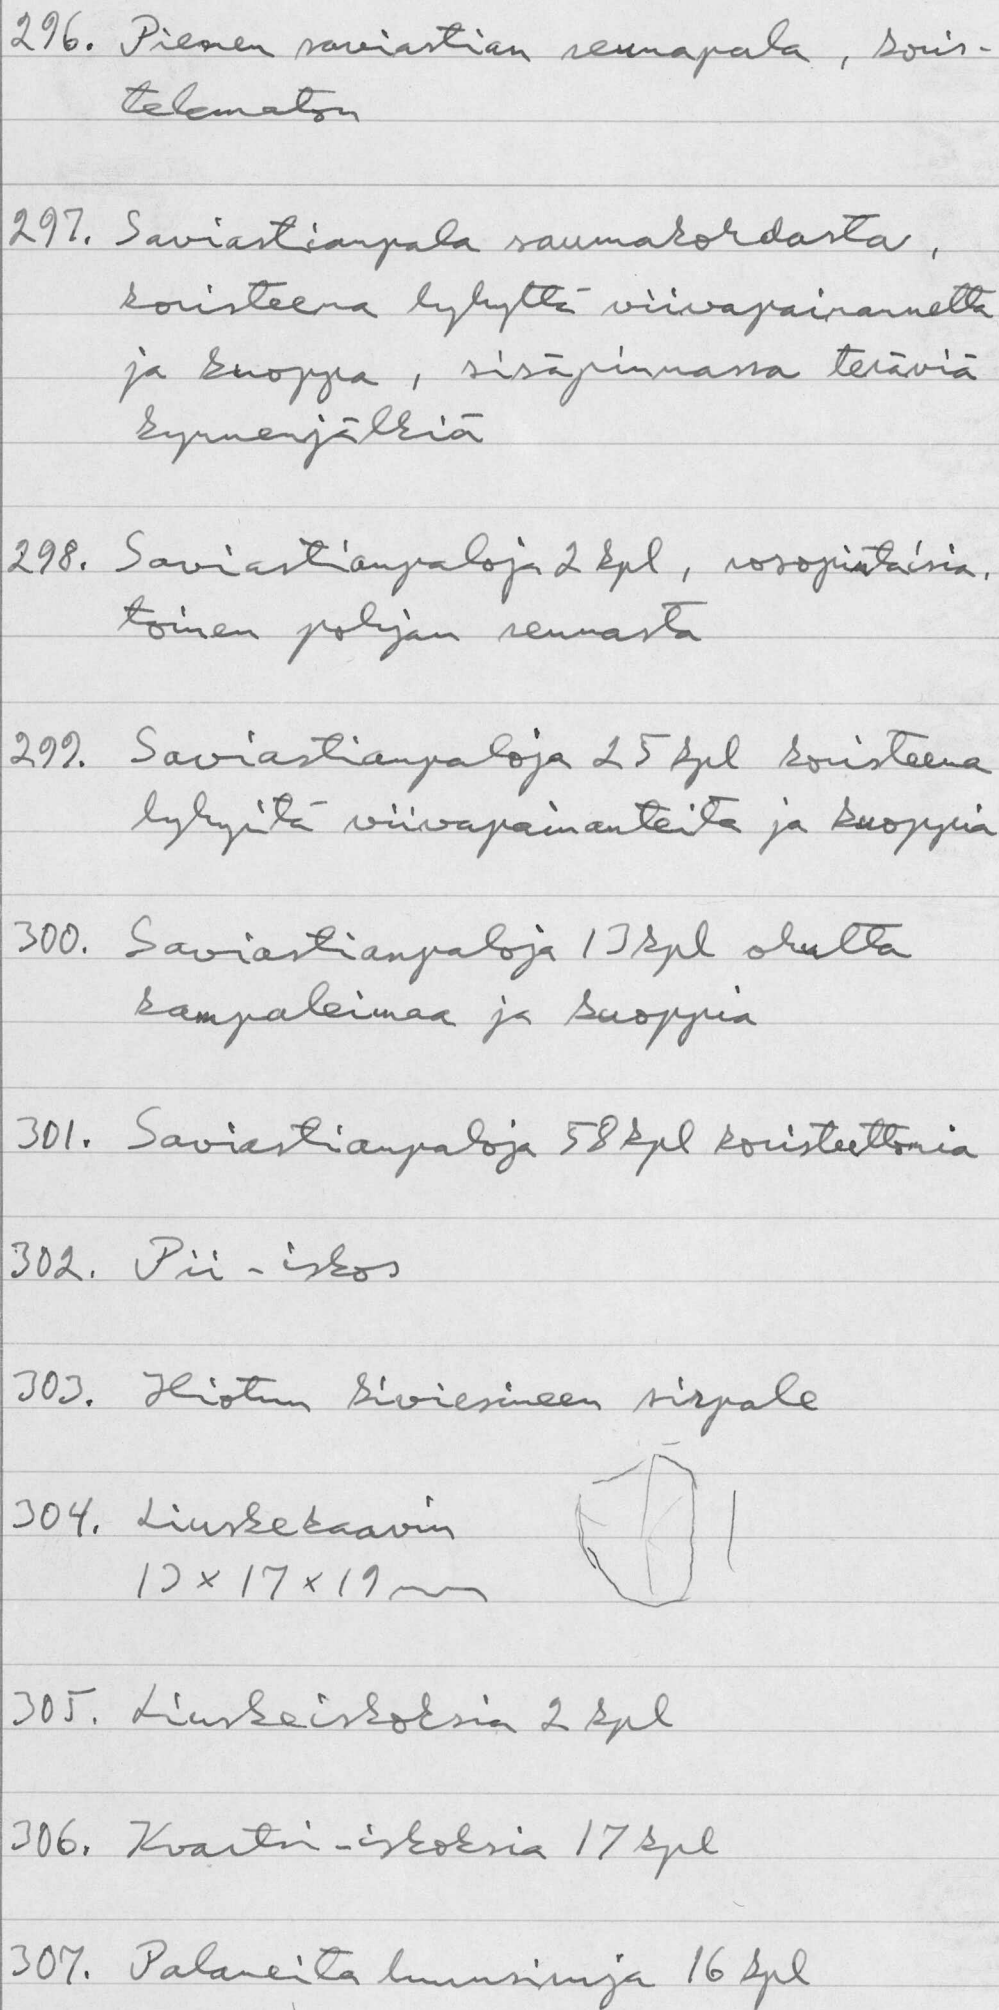 296. Pienen saviastian reunapala, koris-
telematon
297. Saviastianpala saumakohdasta,
koristeena lyhyttä viivapainannetta
ja kuoppa, sisäpinnassa teräviä
kynnenjälkiä
298. Saviastianpaloja 2 kpl, rosopintaisia,
toinen pohjan reunasta
299. Saviastianpaloja 25 kpl koristeena
lyhyitä viivapainanteita ja kuoppia
300. Saviastianpaloja 13 kpl ohutta
kampaleimaa ja kuoppia
301. Saviastianpaloja 58 kpl koristeettomia
302. Pii-iskos
303. Hiotun kiviesineen sirpale
304. Liuskekaavin
13 x 17 x 19 mm
305. Liuskeiskoksia 2 kpl
306. Kvartsi-iskoksia 17 kpl
307. Palaneita luunsiruja 16 kpl